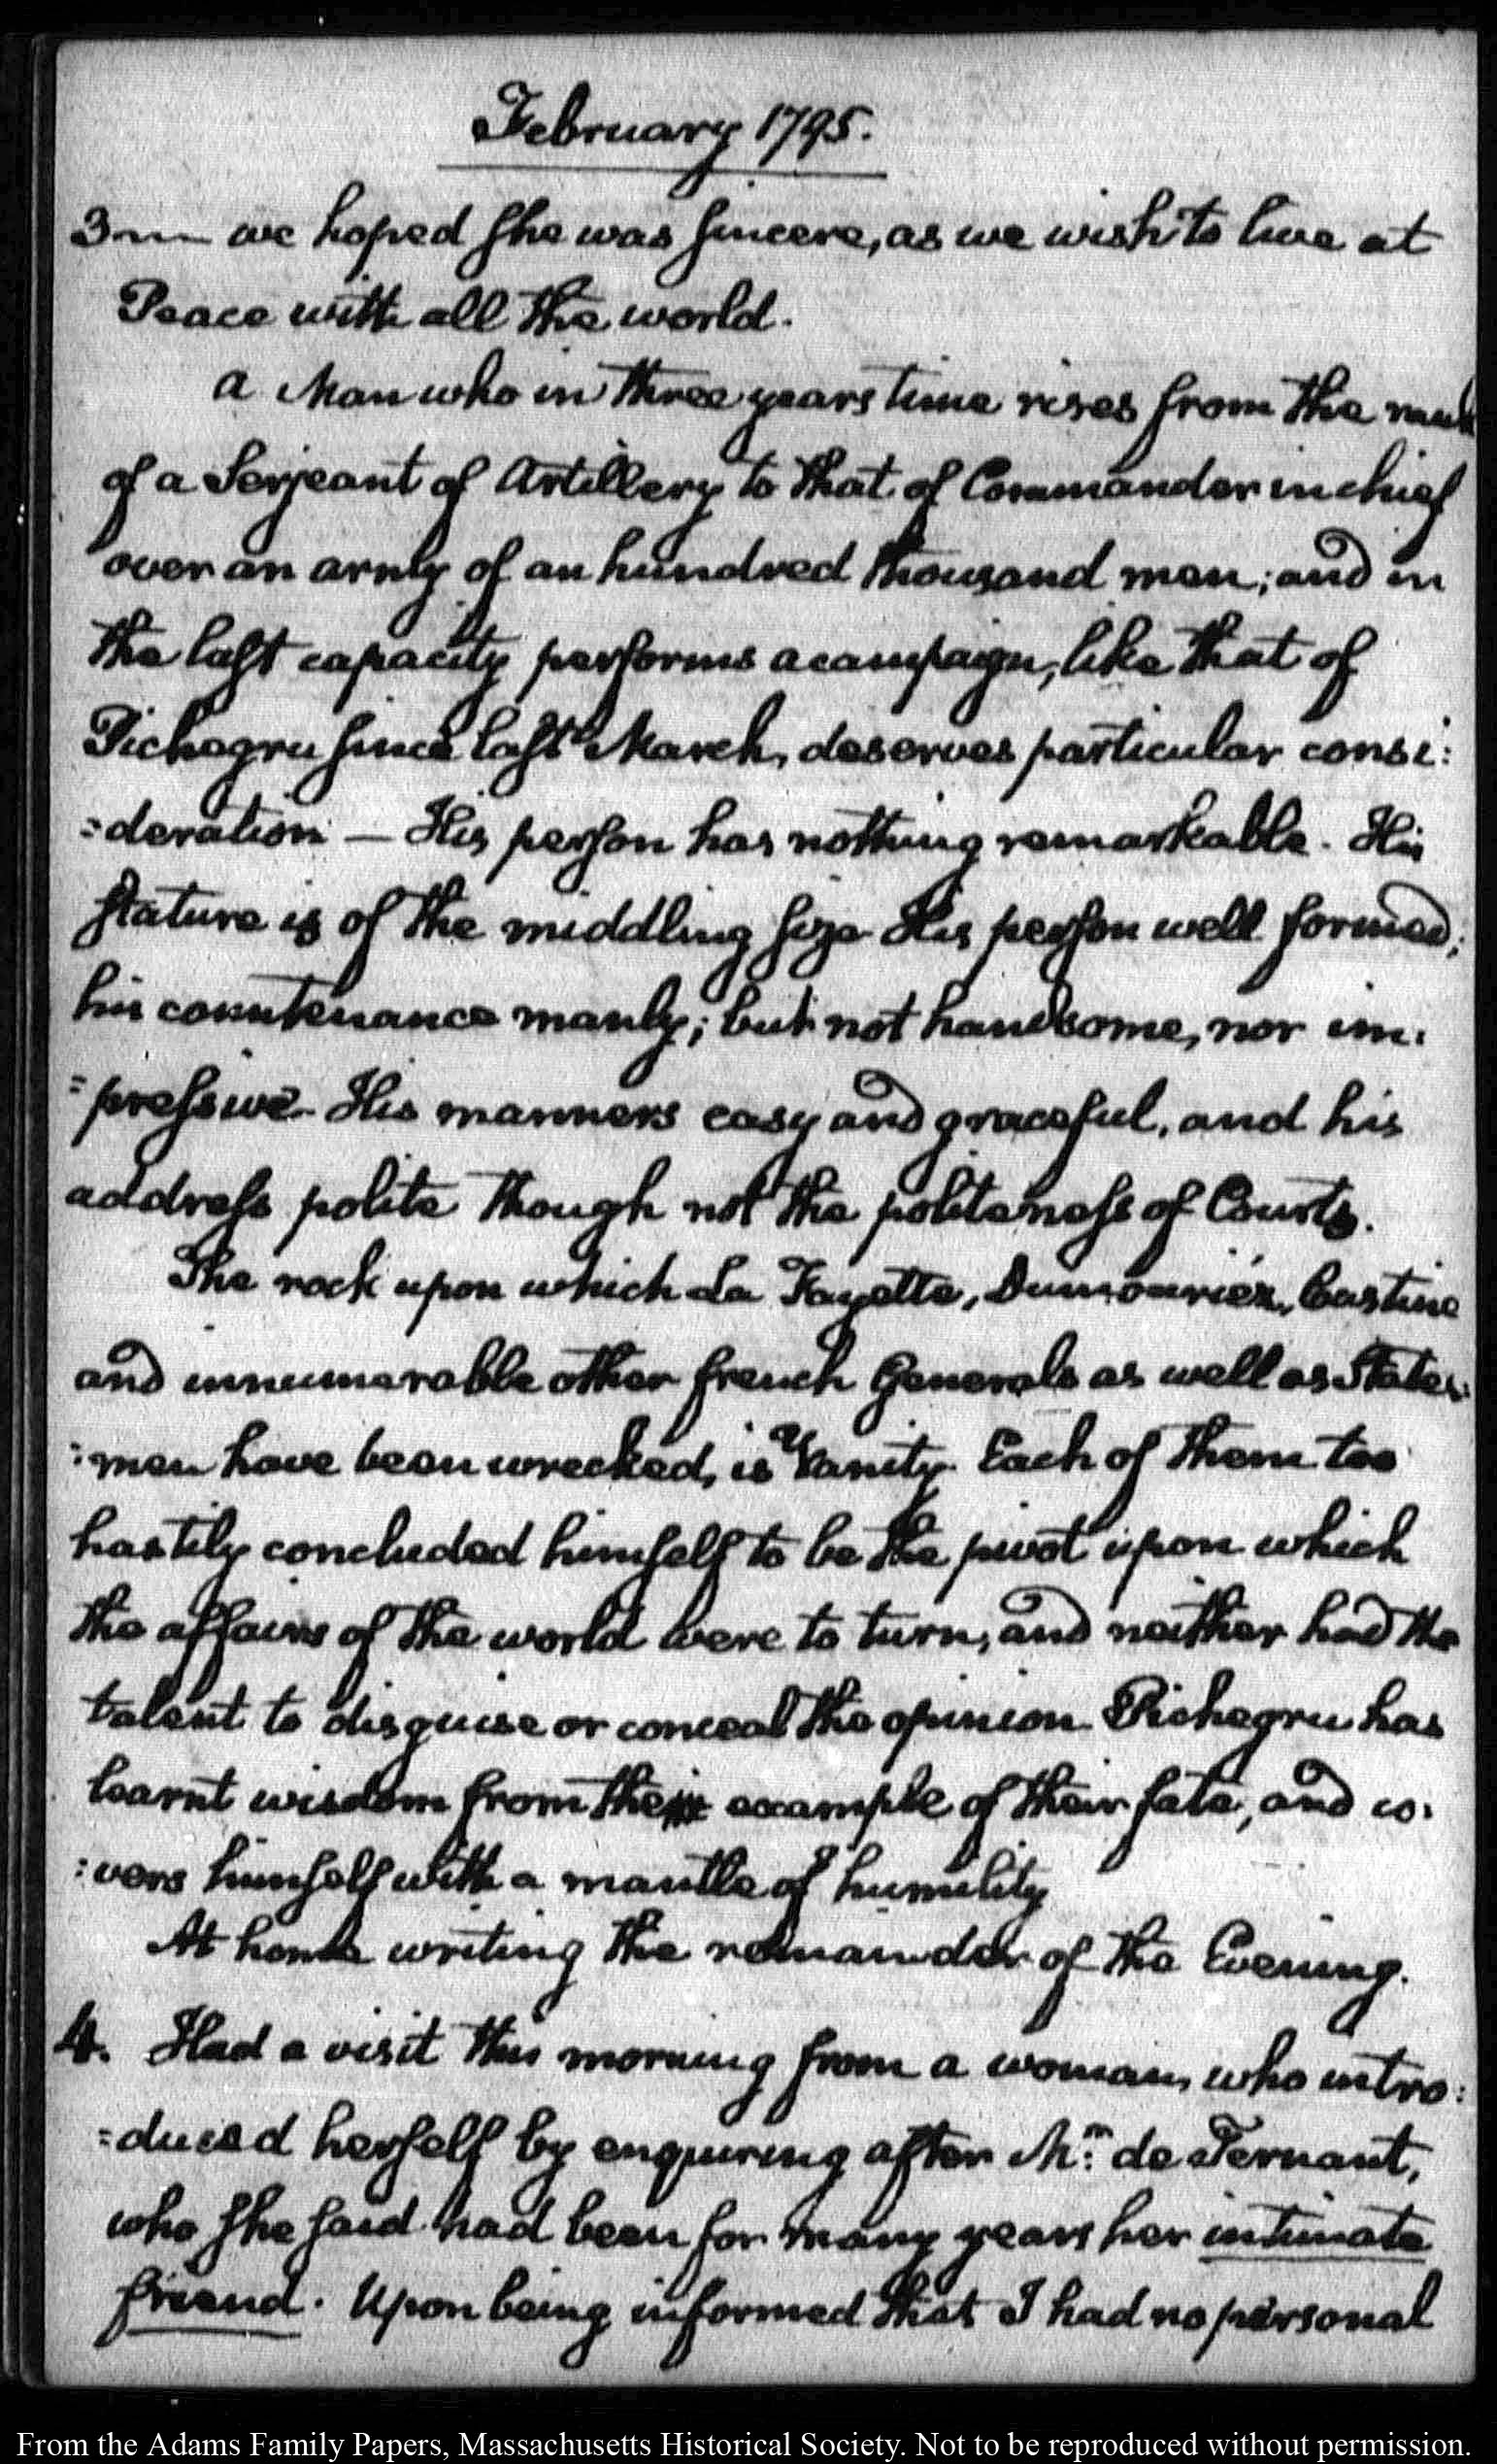 February 1795.
3 — we hoped she was sincere, as we wish to live at
Peace with all the world.
a Man who in three years time rises from the rank
of a Serjeant of Artillery to that of Commander in chief
over an army of an hundred thousand men; and in
the last capacity performs a campaign, like that of
Pichegru since last March, deserves particular consi:
=deration — His person has nothing remarkable. His
stature is of the middling size His person well formed;
his countenance manly; but not handsome, nor im:
=pressive. His manners easy and graceful, and his
address polite though not the politeness of Courts.
The rock upon which La Fayette, Dumouriéz, Custine
and innumerable other french Generals as well as States:
:men have been wrecked, is Vanity. Each of them too
hastily concluded himself to be the pivot upon which
the affairs of the world were to turn, and neither had the
talent to disguise or conceal the opinion. Pichegru has
learnt wisdom from the example of their fate, and co:
:vers himself with a mantle of humility
At home writing the remainder of the Evening.
4. Had a visit this morning from a woman, who intro:
=duced herself by enquiring after Mr: de Ternant,
who she said had been for many years her intimate
friend. Upon being informed that I had no personal
From the Adams Family Papers, Massachusetts Historical Society. Not to be reproduced without permission.